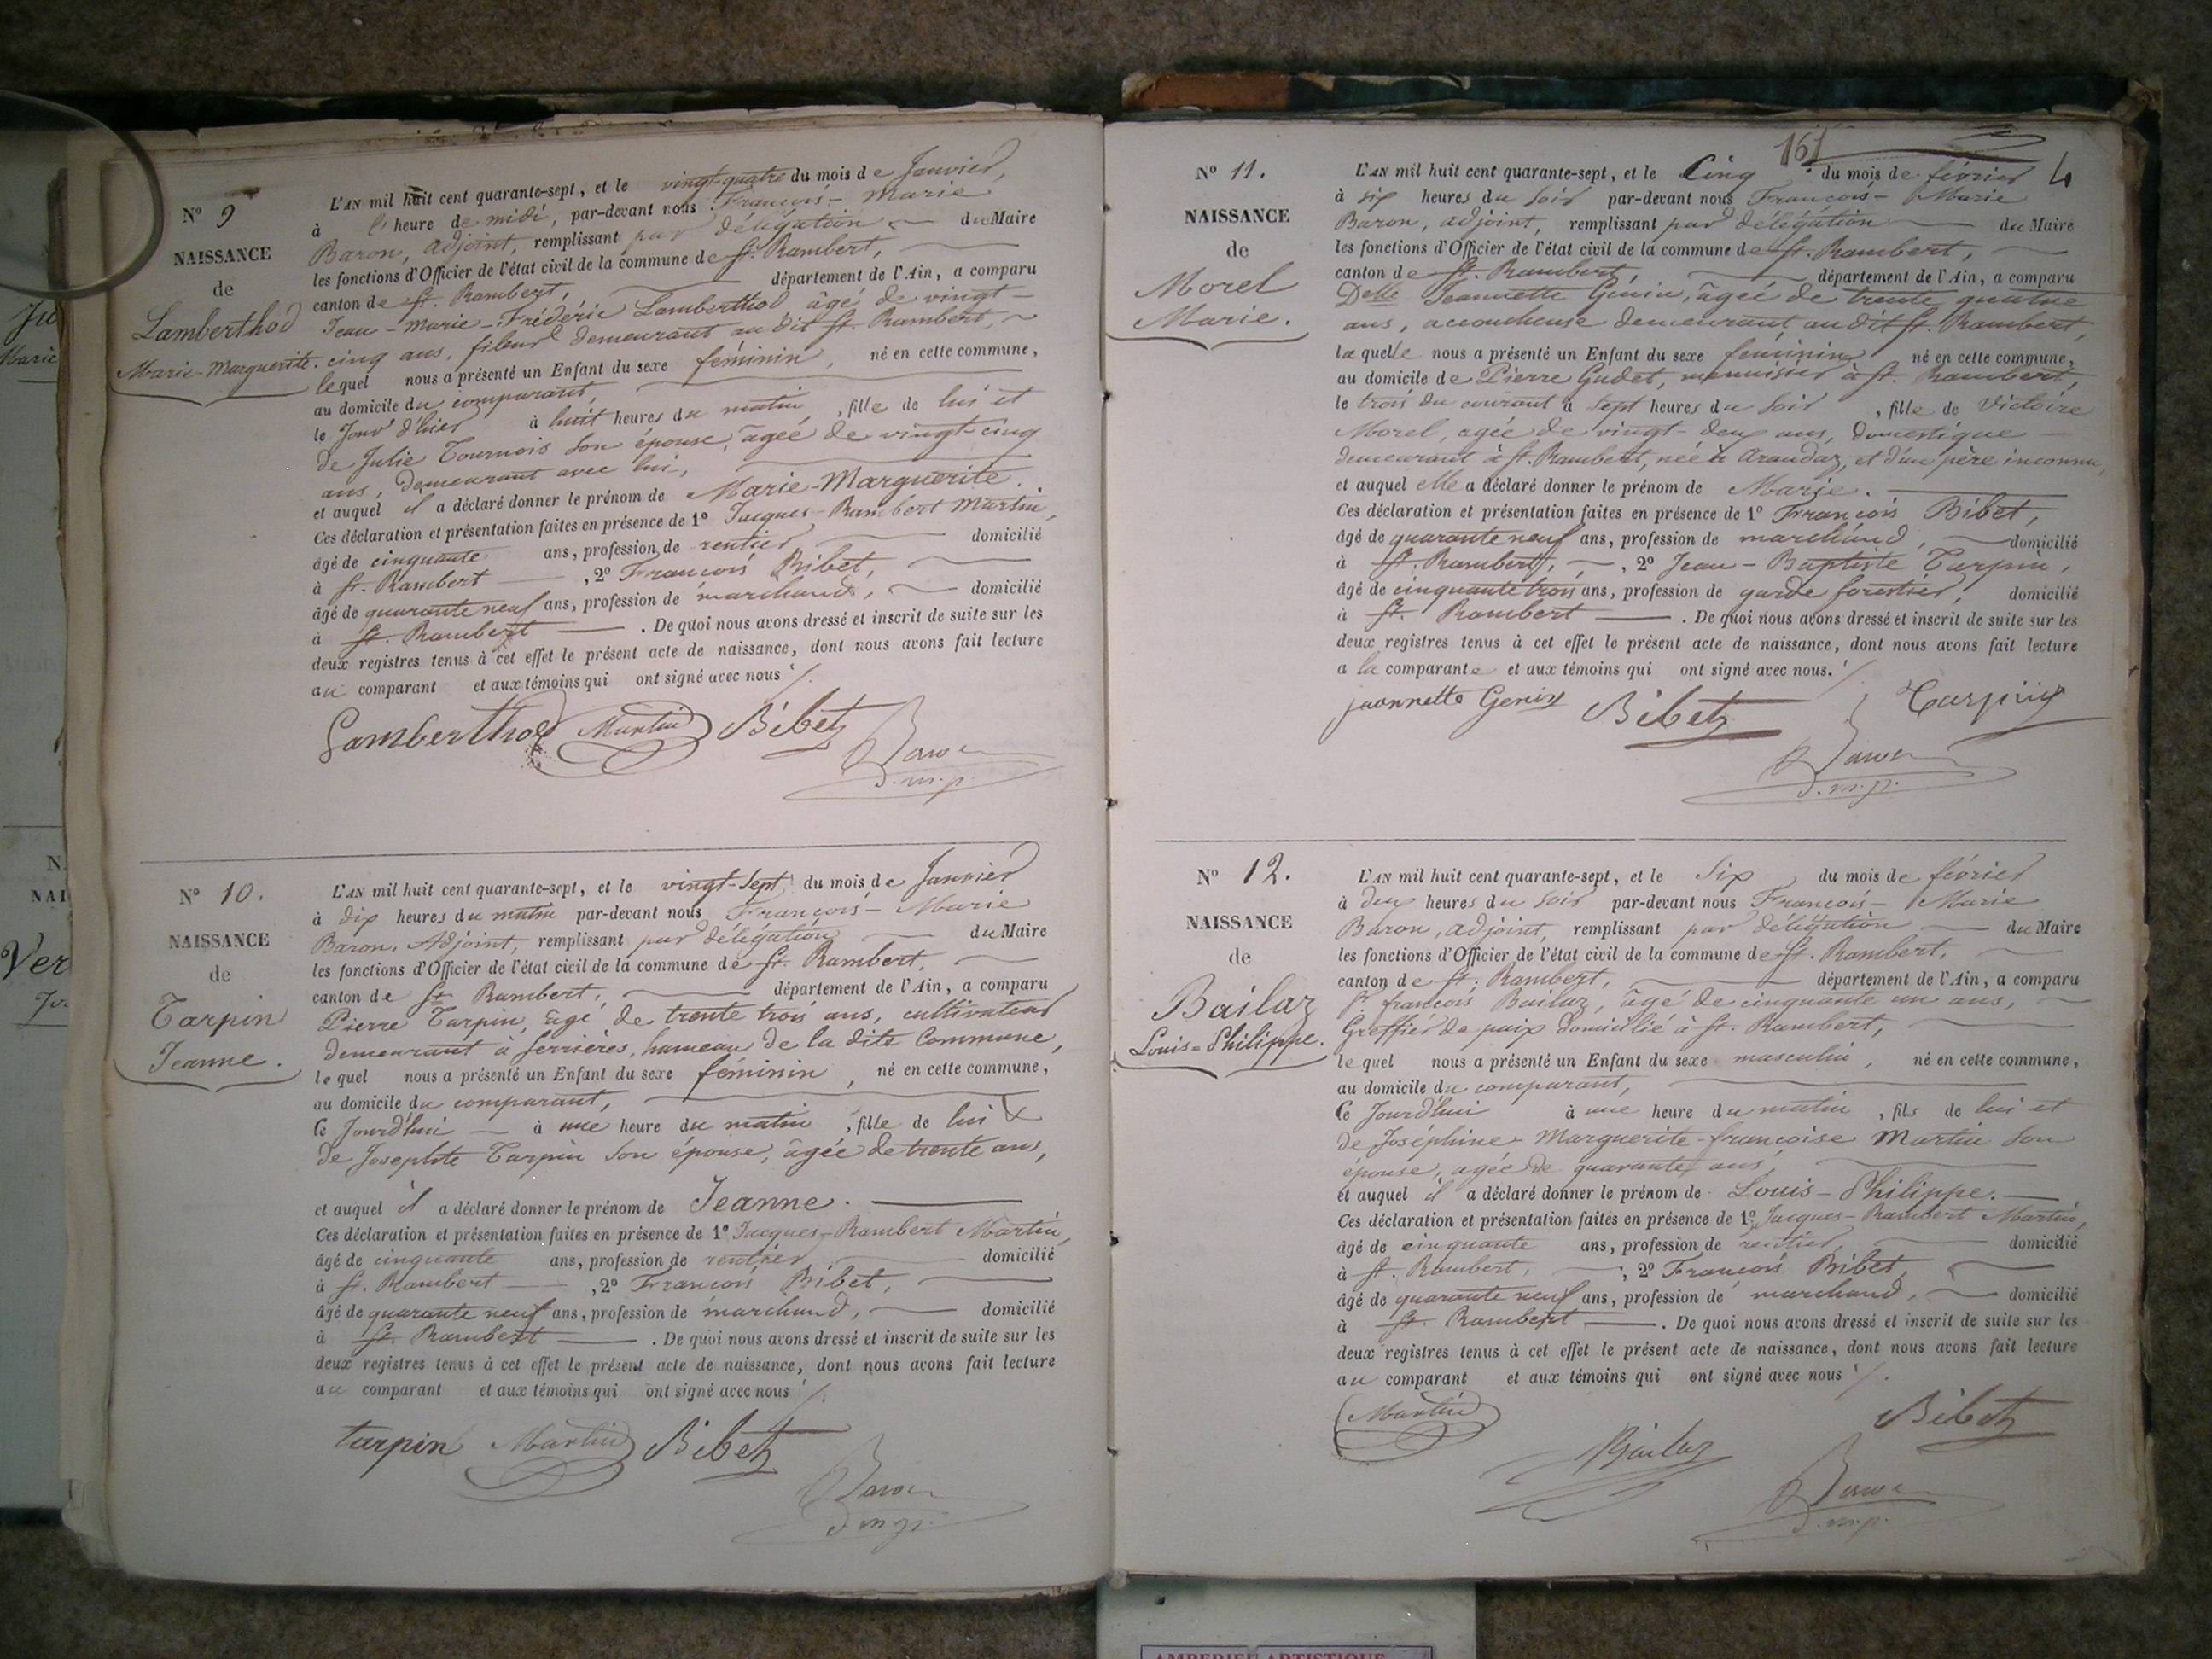 Nº 9
NAISSANCE
de
Lamberthod
Marie-Marguerite.
L'AN mil huit cent quarante-sept, et le vingt-quatre du mois de Janvier,
à l'heure de midi, par-devant nous François-Marie
Baron, adjoint, remplissant par délégation du Maire
les fonctions d'Officier de l'état civil de la commune de St. Rambert,
canton de St. Rambert, département de l'Ain, a comparu
Jean-Marie-Frédéric Lamberthod âgé de vingt-
cinq ans, fileur demeurant au dit St. Rambert,
lequel nous a présenté un Enfant du sexe féminin, né en cette commune,
au domicile du comparant,
le Jour d'hier à huit heures du matin, fille de lui et
de Julie Tournois son épouse, âgée de vingt-cinq
ans, demeurant avec lui,
et auquel il a déclaré donner le prénom de Marie-Marguerite.
Ces déclaration et présentation faites en présence de 1º Jacques-Rambert Martin,
âgé de cinquante ans, profession de rentier domicilié
à St. Rambert, 2º François Bibet,
âgé de quarante neuf ans, profession de marchand, domicilié
à St. Rambert. De quoi nous avons dressé et inscrit de suite sur les
deux registres tenus à cet effet le présent acte de naissance, dont nous avons fait lecture
au comparant et aux témoins qui ont signé avec nous
Lamberthod Martin Bibet
Baron
d.m.p.
Nº 10.
NAISSANCE
de
Tarpin
Jeanne.
L'AN mil huit cent quarante-sept, et le vingt-sept du mois de Janvier
à dix heures du matin par-devant nous François-Marie
Baron, Adjoint, remplissant par délégation du Maire
les fonctions d'Officier de l'état civil de la commune de St. Rambert,
canton de St. Rambert, département de l'Ain, a comparu
Pierre Tarpin, âgé de trente trois ans, cultivateur
demeurant à Serrières, hameau de la dite Commune,
lequel nous a présenté un Enfant du sexe féminin, né en cette commune,
au domicile du comparant,
Ce Jourd'hui à une heure du matin, fille de lui &
de Josephte Tarpin son épouse, âgée de trente ans,
et auquel il a déclaré donner le prénom de Jeanne.
Ces déclaration et présentation faites en présence de 1º Jacques-Rambert Martin,
âgé de cinquante ans, profession de rentier, domicilié
à St. Rambert, 2º François Bibet,
âgé de quarante neuf ans, profession de marchand, domicilié
à St. Rambert. De quoi nous avons dressé et inscrit de suite sur les
deux registres tenus à cet effet le présent acte de naissance, dont nous avons fait lecture
au comparant et aux témoins qui ont signé avec nous
tarpin Martin Bibet
Baron
d.m.p.
161
4
Nº 11.
NAISSANCE
de
Morel
Marie.
L'AN mil huit cent quarante-sept, et le Cinq du mois de février
à six heures du soir par-devant nous François-Marie
Baron, adjoint, remplissant par délégation du Maire
les fonctions d'Officier de l'état civil de la commune de St. Rambert,
canton de St. Rambert, département de l'Ain, a comparu
Delle Jeannette Génin, âgée de trente quatre
ans, accoucheuse demeurant au dit St. Rambert,
laquelle nous a présenté un Enfant du sexe féminin né en cette commune,
au domicile de Pierre Gudet, menuisier à St. Rambert,
le trois du courant à sept heures du soir, fille de Victoire
Morel, agée de vingt-deux ans, domestique
demeurant à St. Rambert, née à Arandaz, et d'un père inconnu,
et auquel elle a déclaré donner le prénom de Marie.
Ces déclaration et présentation faites en présence de 1º François Bibet,
âgé de quarante neuf ans, profession de marchand, domicilié
à St. Rambert, 2º Jean-Baptiste Tarpin,
âgé de cinquante trois ans, profession de garde forestier, domicilié
à St. Rambert. De quoi nous avons dressé et inscrit de suite sur les
deux registres tenus à cet effet le présent acte de naissance, dont nous avons fait lecture
a la comparante et aux témoins qui ont signé avec nous.
jeannette Genin Bibet Tarpin
Baron
d.m.p.
Nº 12.
NAISSANCE
de
Bailaz
Louis=Philippe.
L'AN mil huit cent quarante-sept, et le Six du mois de février
à deux heures du soir par-devant nous François-Marie
Baron, adjoint, remplissant par délégation du Maire
les fonctions d'Officier de l'état civil de la commune de St. Rambert,
canton de St. Rambert, département de l'Ain, a comparu
Sr. françois Bailaz, âgé de cinquante un ans,
Greffier de paix domicilié à St. Rambert,
lequel nous a présenté un Enfant du sexe masculin, né en cette commune,
au domicile du comparant,
Ce Jourd'hui à une heure du matin, fils de lui et
de Joséphine-Marguerite-françoise Martin son
épouse, agée de quarante ans,
et auquel il a déclaré donner le prénom de Louis-Philippe.
Ces déclaration et présentation faites en présence de 1º Jacques-Rambert Martin,
âgé de cinquante ans, profession de rentier, domicilié
à St. Rambert, 2º François Bibet,
âgé de quarante neuf ans, profession de marchand, domicilié
à St. Rambert. De quoi nous avons dressé et inscrit de suite sur les
deux registres tenus à cet effet le présent acte de naissance, dont nous avons fait lecture
au comparant et aux témoins qui ont signé avec nous
Martin Bailaz Bibet
Baron
d.m.p.
AMBERIEU ARTISTIQUE